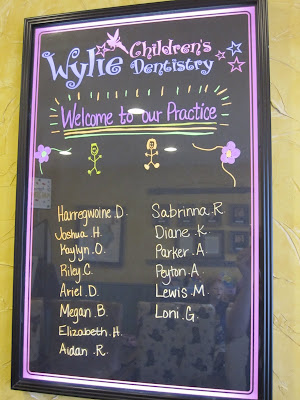 Wylie Children's
Dentistry
Welcome to our Practice
Harregwoine D.
Joshua H.
Kaylyn .O.
Riley C.
Ariel .D.
Megan .B.
Elizabeth .H.
Aidan .R.
Sabrinna .R
Diane .K.
Parker .A.
Peyton .A.
Lewis .M.
Loni .G.